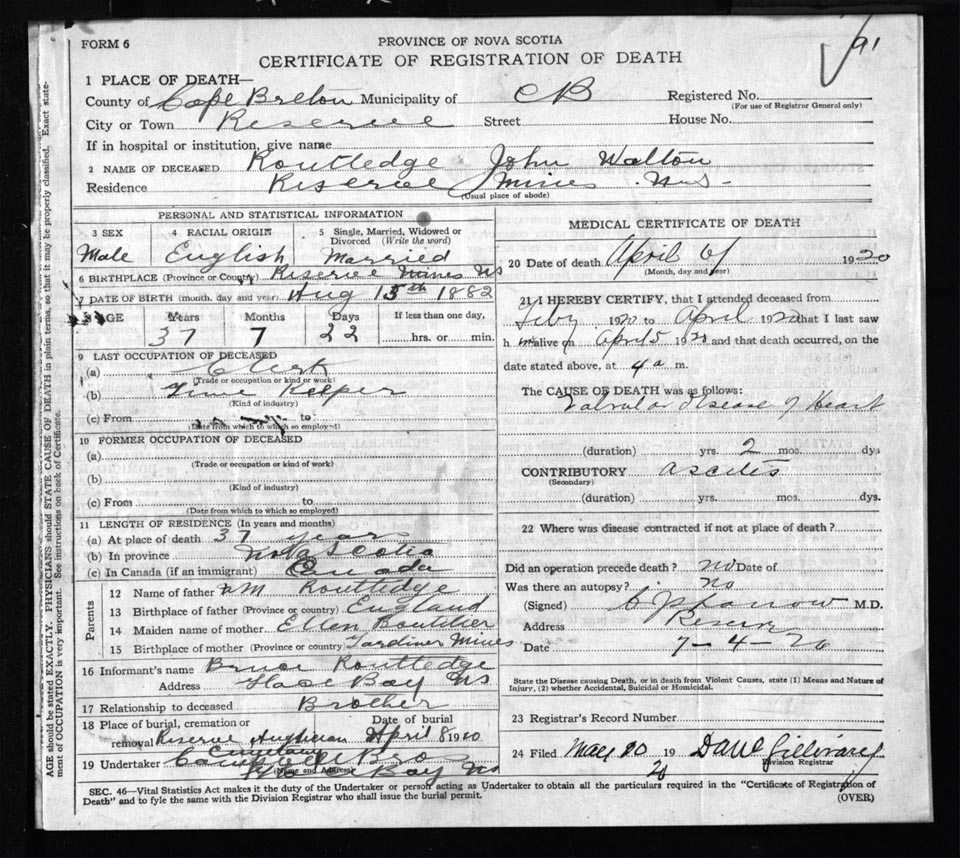 91
FORM 6
PROVINCE OF NOVA SCOTIA
CERTIFICATE OF REGISTRATION OF DEATH
1 PLACE OF DEATH—
County of Cape Breton Municipality of CB Registered No.
(For use of Registrar General only)
City or Town Reserve Street House No.
If in hospital or institution, give name
2 NAME OF DECEASED Routledge John Walton
Residence Reserve Mines N.S.
(Usual place of abode)
PERSONAL AND STATISTICAL INFORMATION
3 SEX 4 RACIAL ORIGIN 5 Single, Married, Widowed or Divorced (Write the word)
Male English Married
6 BIRTHPLACE (Province or Country) Reserve Mines NS
7 DATE OF BIRTH (month, day and year) Aug 15th 1882
8 AGE Years Months Days If less than one day,
37 7 22 hrs. or min.
9 LAST OCCUPATION OF DECEASED
(a) Clerk
(Trade or occupation or kind of work)
(b) Time Keeper
(Kind of industry)
(c) From to
(Date from which to which so employed)
10 FORMER OCCUPATION OF DECEASED
(a)
(Trade or occupation or kind of work)
(b)
(Kind of industry)
(c) From to
(Date from which to which so employed)
11 LENGTH OF RESIDENCE (In years and months)
(a) At place of death 37 years
(b) In province Nova Scotia
(c) In Canada (if an immigrant) Canada
Parents
12 Name of father Wm Routledge
13 Birthplace of father (Province or country) England
14 Maiden name of mother Ellen Boutilier
15 Birthplace of mother (Province or country) Gardiner Mines
16 Informant's name Bruce Routledge
Address Glace Bay NS
17 Relationship to deceased Brother
18 Place of burial, cremation or removal Reserve Anglican Cemetery Date of burial April 8 1920
19 Undertaker Campbell Bro
(Name and Address) Glace Bay NS
MEDICAL CERTIFICATE OF DEATH
20 Date of death April 6 1920
(Month, day and year)
21 I HEREBY CERTIFY, that I attended deceased from
Feby 1920 to April 1920 that I last saw
him alive on April 5 1920 and that death occurred, on the
date stated above, at 4 a m.
The CAUSE OF DEATH was as follows:
Valvular disease of Heart
(duration) yrs. 2 mos. dys
CONTRIBUTORY ascites
(Secondary)
(duration) yrs. mos. dys.
22 Where was disease contracted if not at place of death?
Did an operation precede death? no Date of
Was there an autopsy? no
(Signed) M.D.
Address Reserve
Date 7-4-20
State the Disease causing Death, or in death from Violent Causes, state (1) Means and Nature of
Injury, (2) whether Accidental, Suicidal or Homicidal.
23 Registrar's Record Number
24 Filed May 20 19 20
Division Registrar
SEC. 46—Vital Statistics Act makes it the duty of the Undertaker or person acting as Undertaker to obtain all the particulars required in the "Certificate of Registration of
Death" and to fyle the same with the Division Registrar who shall issue the burial permit.
(OVER)
AGE should be stated EXACTLY. PHYSICIANS should STATE CAUSE OF DEATH in plain terms, so that it may be properly classified. Exact state-
ment of OCCUPATION is very important. See instructions on back of Certificate.